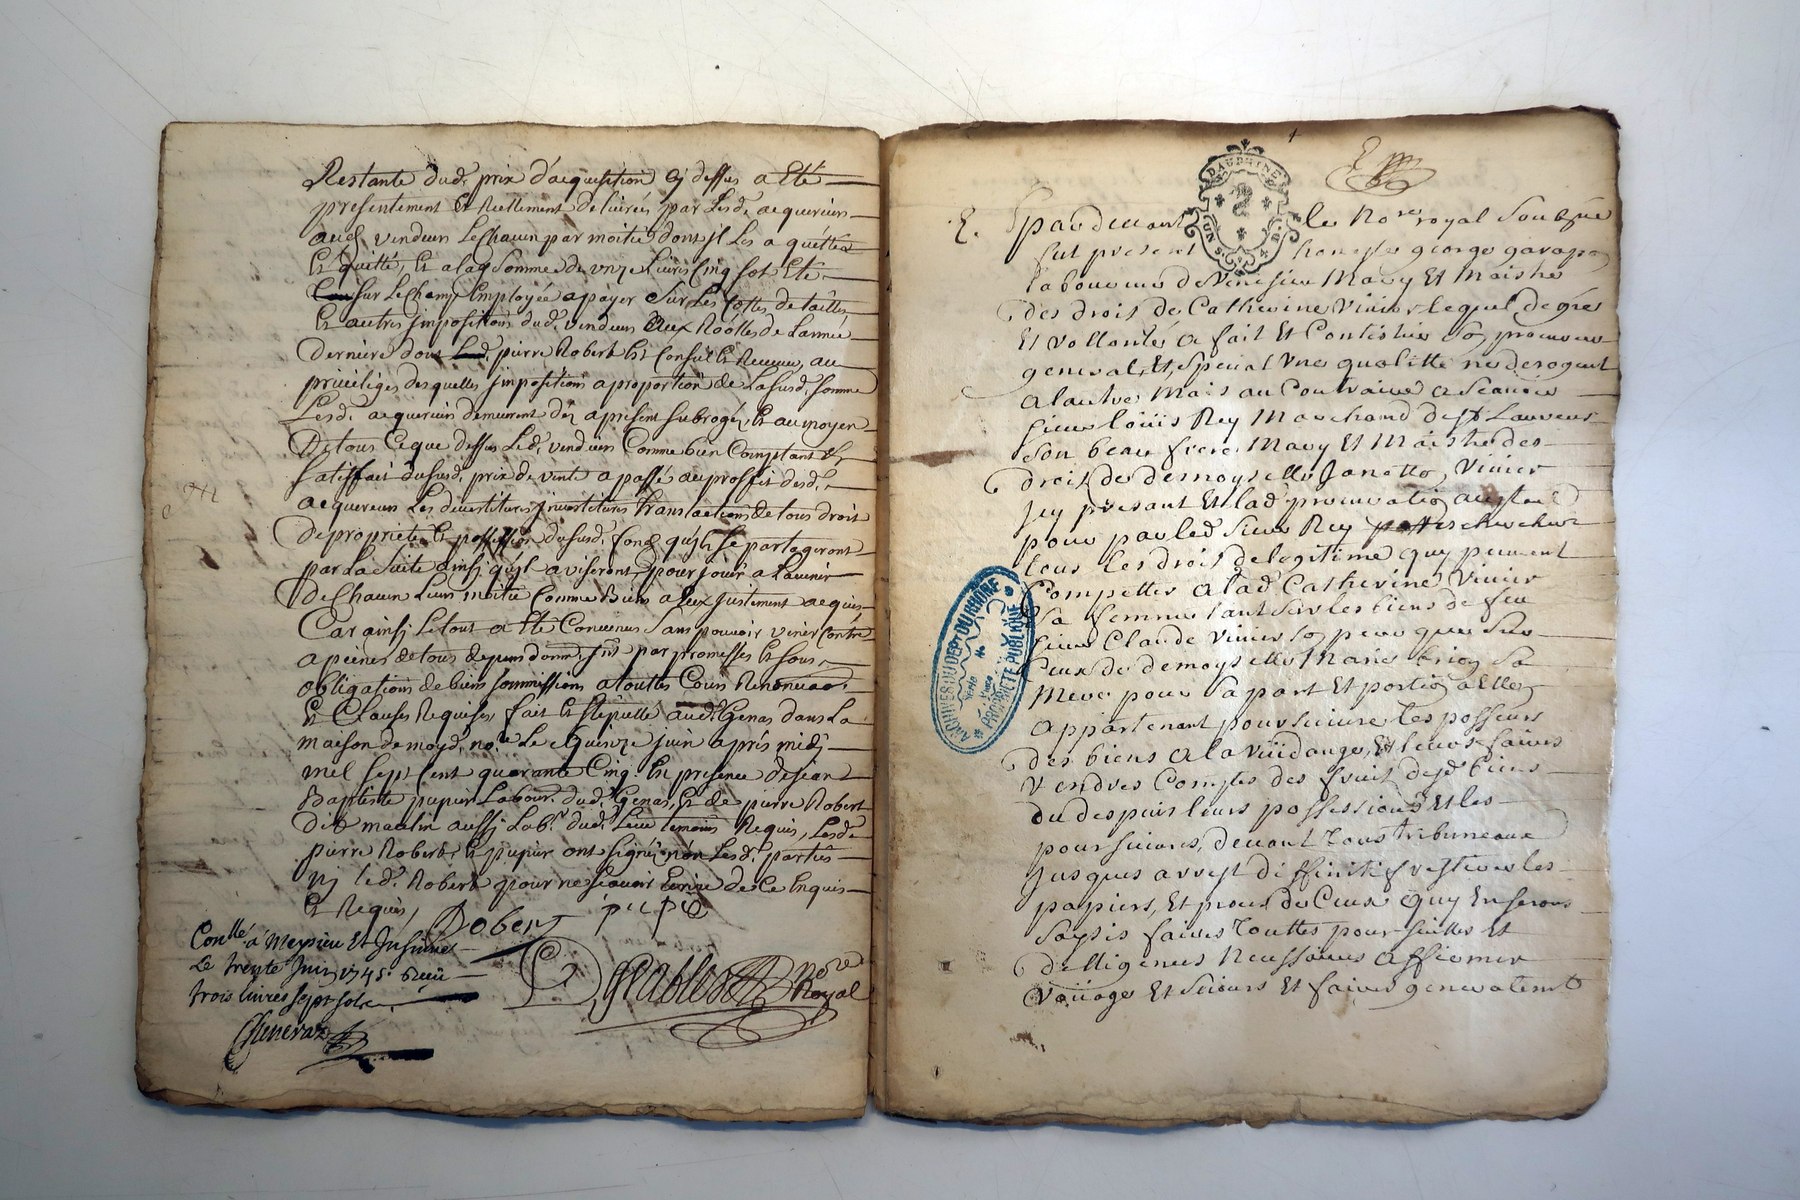 Restante dud. prix d'acquisition cy dessus a Eté
presentement Et Reellement delivrée par Lesd. acquereurs
aud. vendeur Lechacun par moitié dont jl Les a quittés
Et quitte, Et a laq somme de onze Livres Cinq sol Eté
sur Lechamp Employée a payer sur Les Cottes de tailles
Et autres jmpositions dud. vendeur aux Roolles de Lannée
derniere dont pierre Robert Est Consul Et Receveur, au
privileges desquelles jmpositions a proportion de La susd. somme
Lesd. acquereurs demeurent des aprésent subrogés, Et au moyen
De tous Ceque dessus Led. vendeur Comme bien Comptant &
satisfait dusud. prix de vente a passé au proffit desd.
acquereurs Les devestitures jnvestitures translations de tous droit
De proprieté Et possession dusud. fond quils se partageront
par La suite ainsj quils aviseront, pour jouir a Lavenir
De Chacun Leur moitié Comme Biens a Eux justement acquis
Car ainsj Letout a Eté Convenus sans pouvoir venir Contre
a peines de tous depens dom. jns par promesses Et sous
obligations de biens soumissions a toutes Cours Renon
Et Clauses Requises fait Et stipullé aud. Genas dans La
maison de moyd. no.re Le quinze juin aprés midj
mil sept Cent quarante Cinq En presence de jean
Baptiste pupier Labour. dud. Genas, Et de pierre Robert
Dit maulin aussj Lab.r dud. Lieu temoins Requis, Lesd.
pierre Robert Et pupier ont signés non Lesd. parties
nj led. Robert pour ne sçavoir Ecrire de Ce Enquis
Et Requis,
Robert pupie
Conllé a Meysieu Et Insinué
Le trente Juin 1745. Reçu
trois livres sept sols
Grablos Nore Royal
DAUPHINE
DEUX SOLS
E. Pardevant le Nore royal Soubsigne
fut present honeste george garapo
laboureur de Venissieu Mary Et Maistre
des droit de Catherine Vivier lequel de gré
Et vollonté a fait Et Constitué so procureur
general Et, spécial Une qualitté ne derogent
a lautre Mais au Contraire a Scavoir
sieur loüis Rey Marchand de St Laurens
son beau frere Mary Et Maistre des
droit de demoyselle Janette Vivier
jcy présant Et lad procuration acceptant
pour par led Sieur Rey chercher
tous les droit de legitime quy peuvent
Compettes a lad Catherine Vivier
sa femme tant sur les biens de feu
sieur Claude Vivier so pere que sur
Ceux de demoyselle Marie brio sa
Mere pour sa part Et portio a Elle
appartenant poursuivre les posseurs
des biens a la vüidange, Et leurs faires
rendres Comptes des fruit desd biens
du despuis leurs possessions Et les
poursuivre, devant Tous tribuneaux
jusques arrest diffinitif restirer les
papiers, Et pieces de Ceux quy En seront
saysis faires Touttes poursuittes Et
dilligences Neussaires affirmer
voÿage Et sejours Et faires generalement
ARCHIVES DU DEPT DU RHÔNE
PROPRIÉTÉ PUBLIQUE